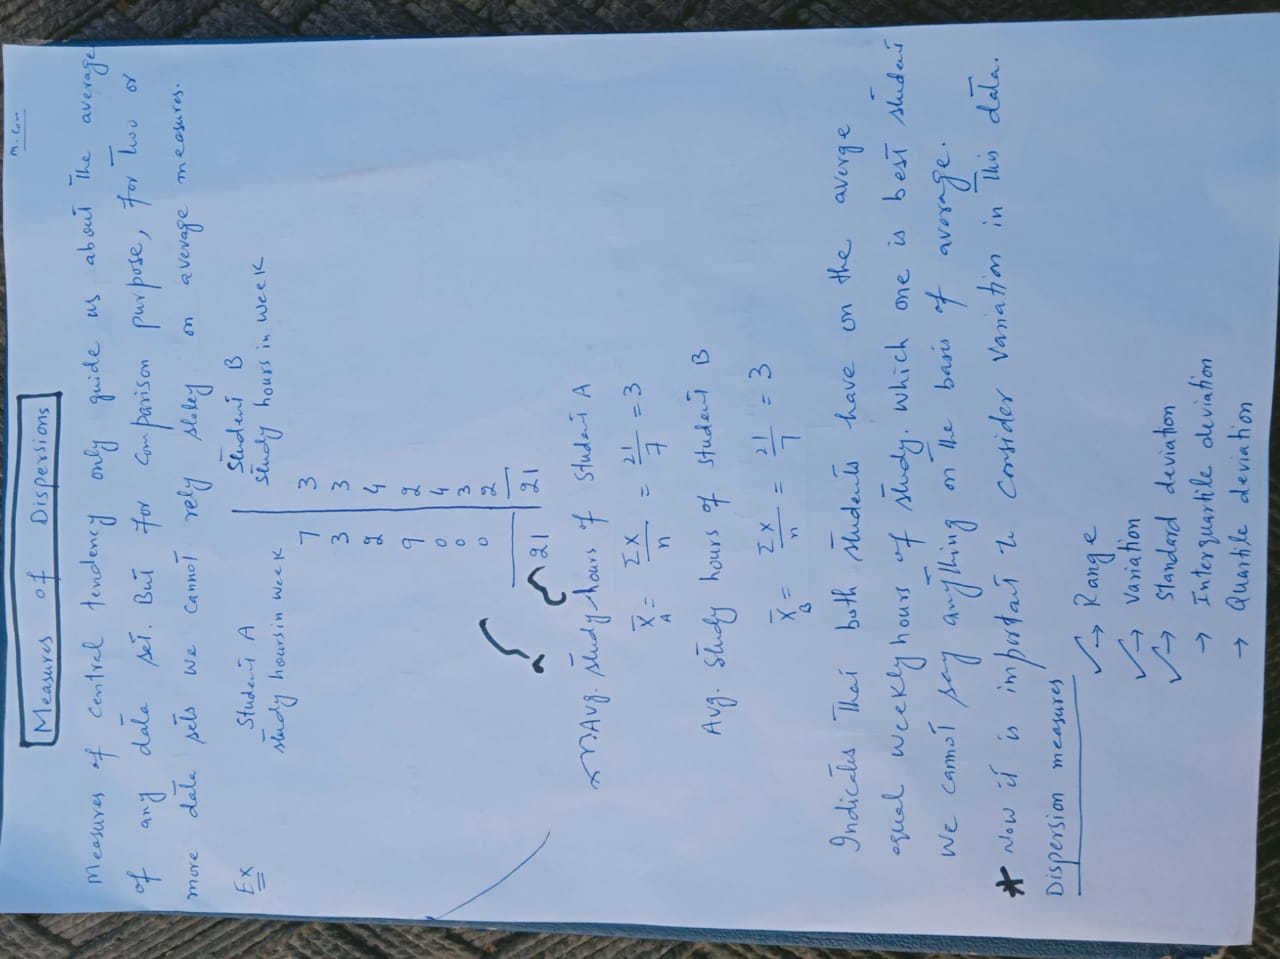 M. Com
Measures of Dispersions
Measures of central tendency only guide us about the average
of any data set. But for comparison purpose, for two or
more data sets we cannot rely sloley on average measures.
Ex Student A Student B
study hours in week study hours in week
7 3
3 3
2 4
9 2
0 4
0 3
0 2
21 21
Avg. study hours of student A
X̄A = ΣX/n = 21/7 = 3
Avg. study hours of student B
X̄B = ΣX/n = 21/7 = 3
Indicates that both students have on the averge
equal weekly hours of study. which one is best student
we cannot say anything on the basis of average.
* Now it is important to consider variation in this data.
Dispersion measures
✓→ Range
✓→ Variation
✓→ standard deviation
→ Interquartile deviation
→ Quartile deviation